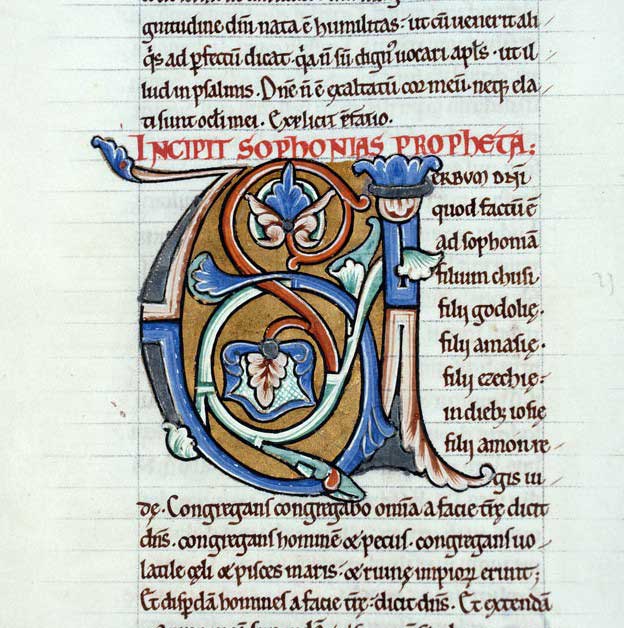 gnitudine dñi nata ē humilitas · ut cū venerit ali
q̇s ad ꝑfectū dicat · q̇a ñ sū dignꝰ vocari apls̄ · ut il
lud in psalmis · Dñe ñ ē exaltatū cor meū · neqꝫ ela
ti sunt oculi mei · Explicit
INCIPIT SOPHONIAS PROPHETA:
VERBUM DÑI
quod factū ē
ad sophoniā
filium chusi
filij godolię ·
filij amasię ·
filij ezechię ·
in diebꝫ iosię
filij amon re
gis iu
dę · Congregans congregabo omīa a facie tr̄ę dicit
dñs · congregans hominē & pecus · congregans uo
latile cęli & pisces maris · & ruinę impioꝝ erunt ;
Et disꝑdā homines a facie tr̄ę · dicit dñs · Et extendā